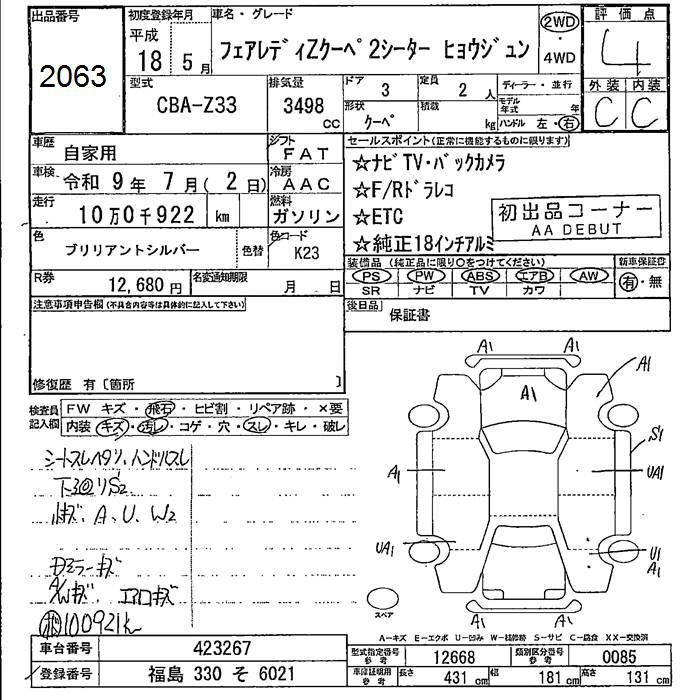 出品番号
2063
初度登録年月
平成
18 5月
車名・グレード
フェアレディZクーペ 2シーター ヒョウジュン
2WD
4WD
評価点
4
外装 内装
C C
型式
CBA-Z33
排気量
3498
cc
ドア
3
定員
2 人
形状
クーペ
積載
kg
ディーラー・並行
モデル年式 年
ハンドル 左・右
車歴
自家用
シフト
FAT
車検
令和 9年 7月( 2日)
冷房
AAC
走行
10万0千922 km
燃料
ガソリン
色
ブリリアントシルバー
色替
色コード
K23
R券
12,680円
名変通知期限
月 日
セールスポイント(正常に機能するものに限ります)
☆ナビTV・バックカメラ
☆F/Rドラレコ
☆ETC
☆純正18インチアルミ
初出品コーナー
AA DEBUT
装備品(純正品に限り○をつけてください)
PS PW ABS エアB AW
SR ナビ TV カワ
新車保証書
有・無
後日品
保証書
注意事項申告欄(不具合内容等は具体的に記入して下さい)
修復歴 有〔箇所 〕
検査員記入欄
FW キズ・飛石・ヒビ割・リペア跡・×要
内装 キズ・汚レ・コゲ・穴・スレ・キレ・破レ
シートスレヘタリ、ハンドルスレ
小キズ、A、U、W2
Dミラーキズ
A/Wキズ エアロキズ
100921k
A1 A1
A1
A1
S1
A1
UA1
UA1
U1
A1
A1 A1
スペア
A-キズ E-エクボ U-凹み W-補修跡 S-サビ C-腐食 XX-交換済
車台番号
423267
登録番号
福島 330 そ 6021
型式指定番号
参考
12668
類別区分番号
参考
0085
車庫証明用
参考
長さ 431 cm 幅 181 cm 高さ 131 cm